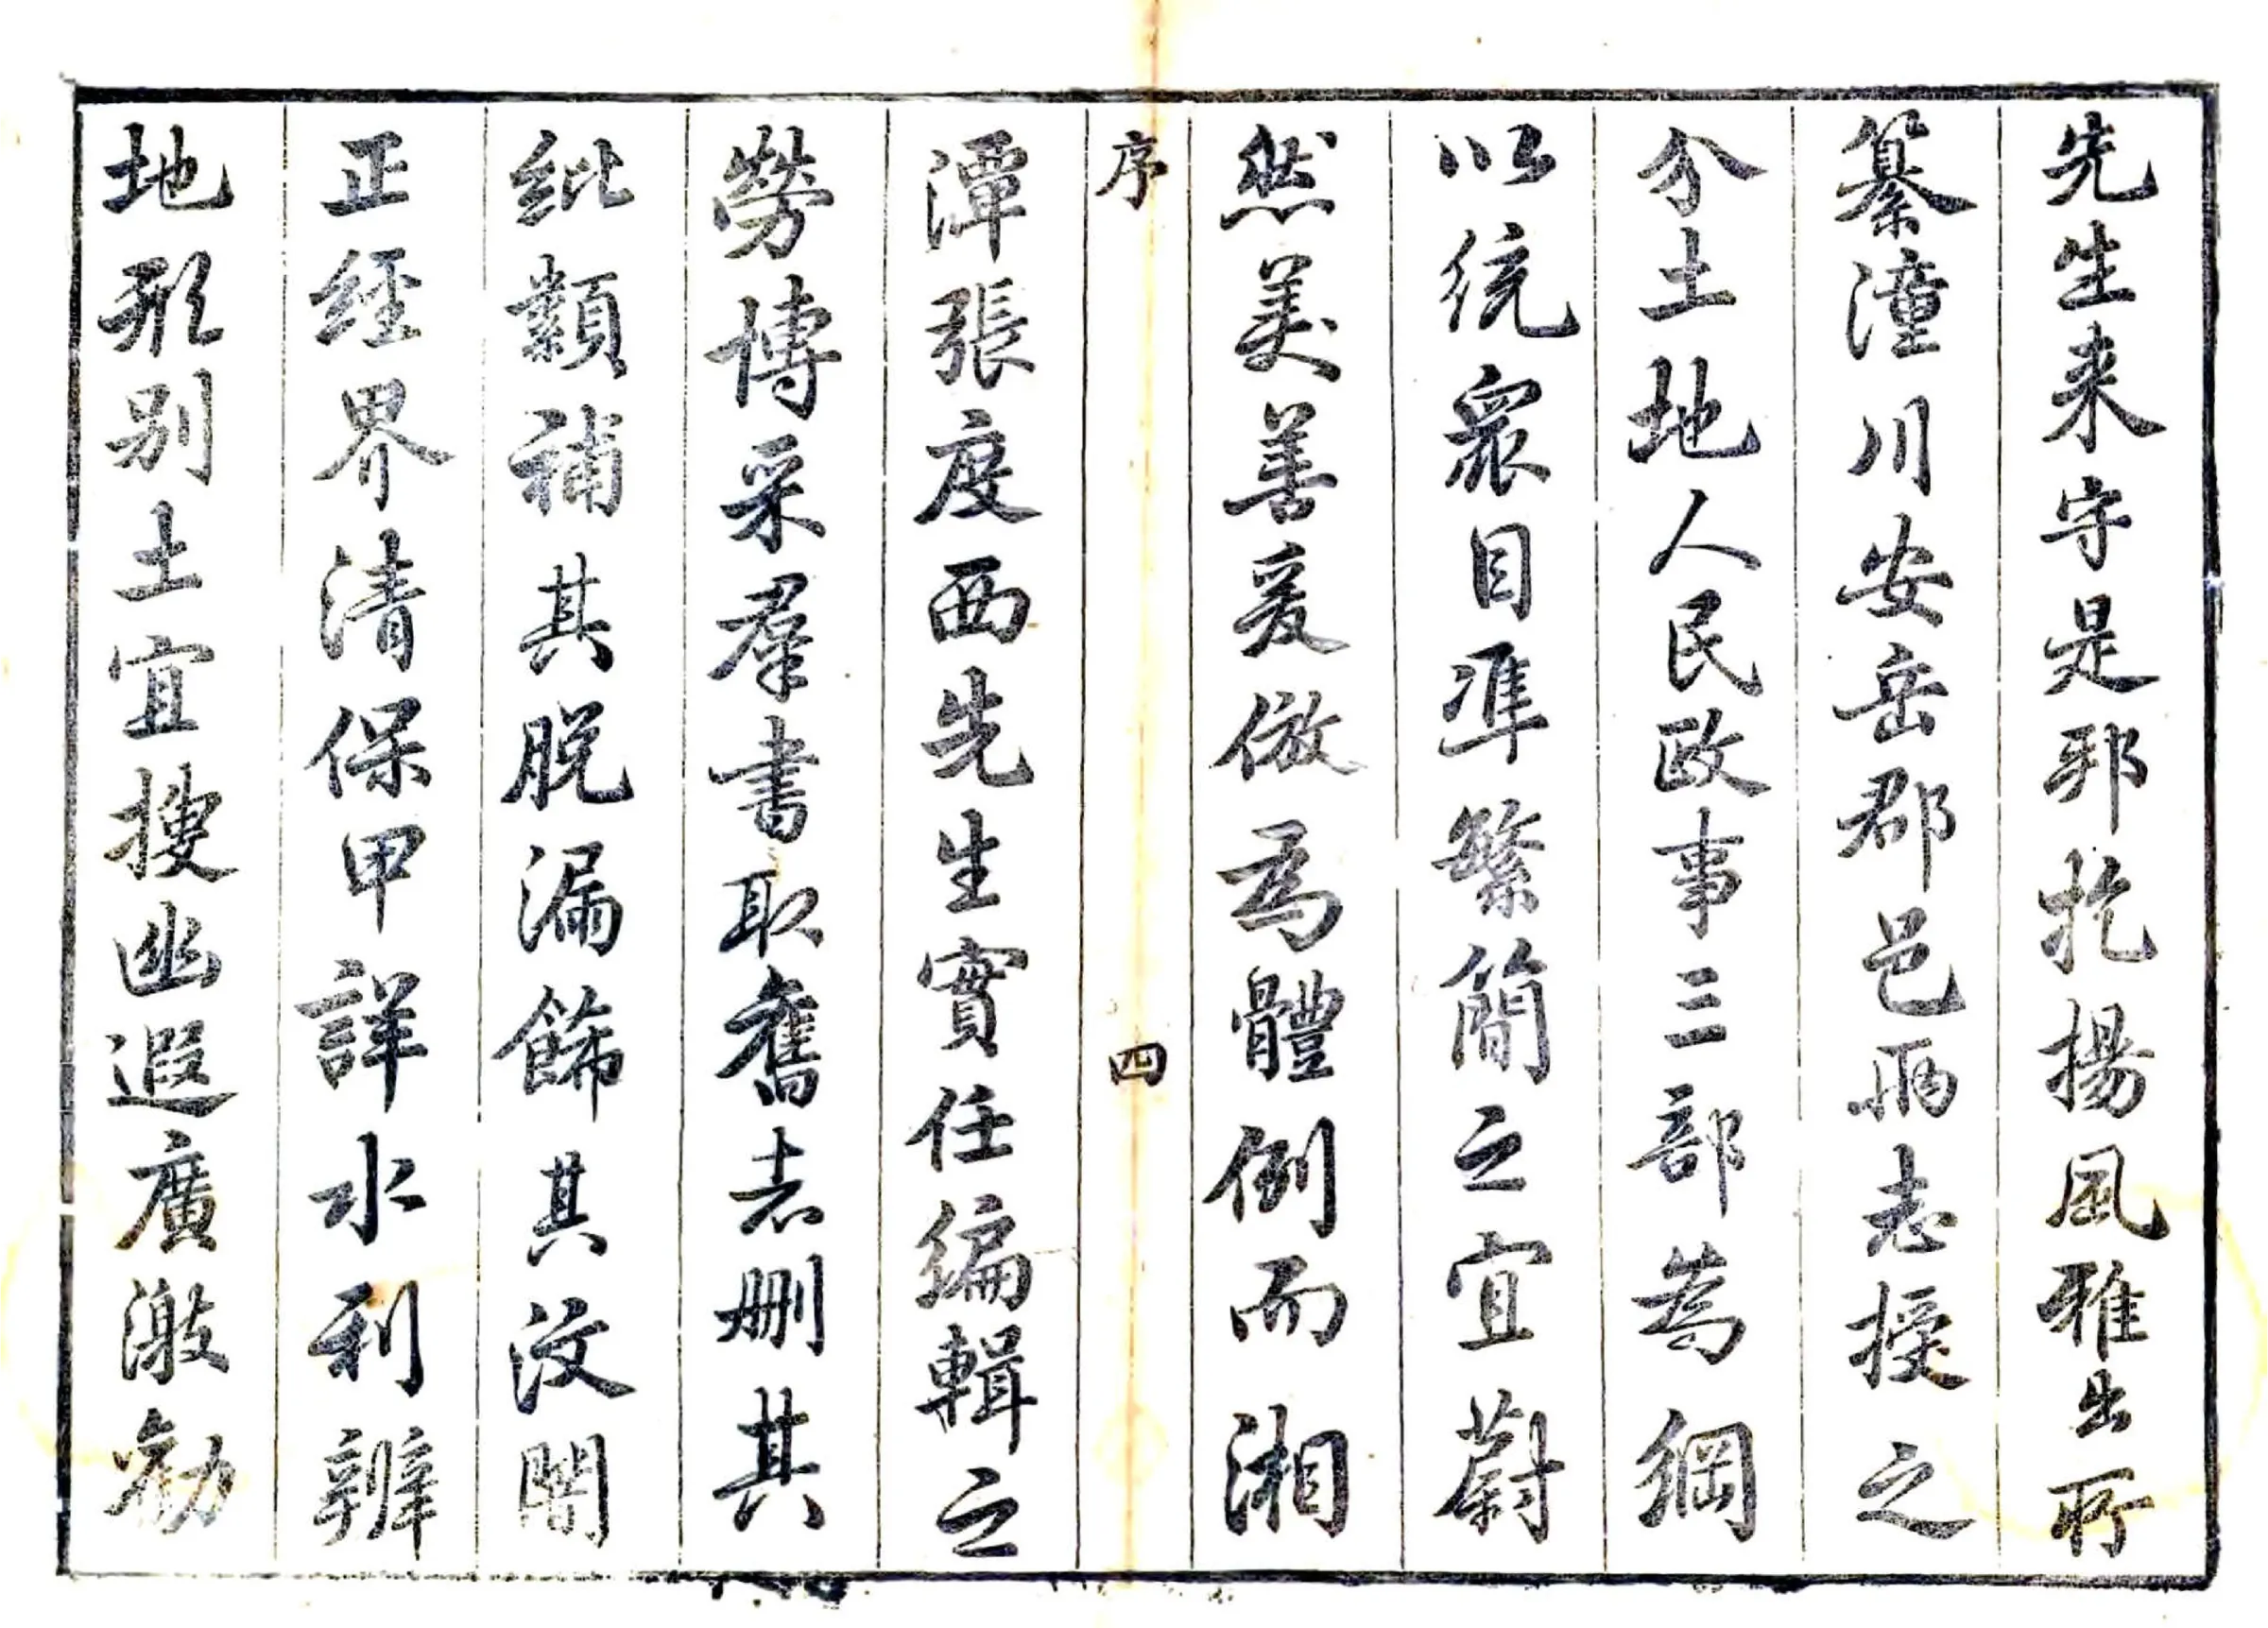 先生来守是邦扢揚風雅出所
纂潼川安岳郡邑兩志授之
分土地人民政事三部為綱
以統衆目準繁簡之宜蔚
然美善爰倣為體例而湘
序 四
潭張度西先生實任編輯之
勞博采羣書取舊志刪其
紕纇補其脫漏飾其汶闇
正經界清保甲詳水利辨
地形别土宜搜幽遐廣激勸